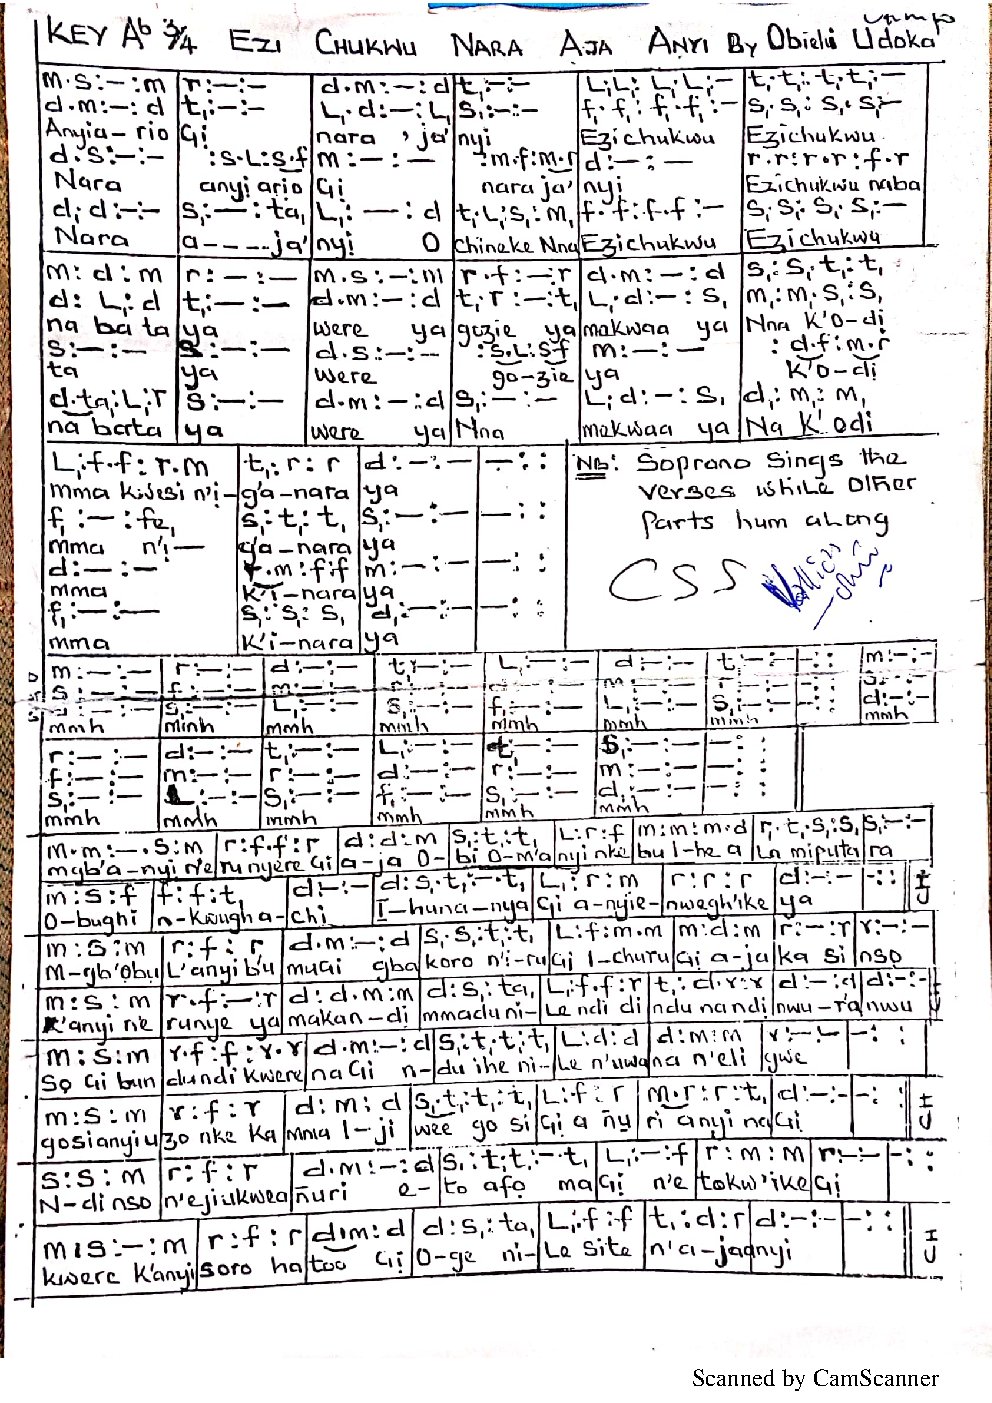 KEY Ab 3/4 EZI CHUKWU NARA AJA ANYI By Obichi Udoka
m.s:–:m | r:–:– | d.m:–:d | t,:–:– | L,L,:L,L,:– | t,t,:t,t,:–
d.m:–:d | t,:–:– | L,d:–:L, | s,:–:– | f,f,:f,f,:– | s,s,:s,s,:–
Anyia-rio | Gi | nara 'ja' | nyi | Ezichukwu | Ezichukwu
d.s:–:– | :s.L:s.f | m:–:– | :m.f:m.r | d:–:– | r.r:r.r:f.r
Nara | anyi ario | Gi | nara ja' | nyi | Ezichukwu naba
d,d:–:– | s,:–:ta, | L,:–:d | t,L,:s,:m, | f.f:f.f:– | s,s,:s,s,:–
Nara | a----ja' | nyi O | Chineke Nna | Ezichukwu | Ezichukwu
m:d:m | r:–:– | m.s:–:m | r.f:–:r | d.m:–:d | s,:s,t,:t,
d:L,:d | t,:–:– | d.m:–:d | t,r:–:t, | L,d:–:s, | m,:m,s,:s,
na ba ta | ya | were ya | gozie ya | makwaa ya | Nna K'O-di
s:–:– | s:–:– | d.s:–:– | :s.L:s.f | m:–:– | :d.f:m.r
ta | ya | were | go-zie | ya | K'O-di
d.ta,:L,:r | s:–:– | d.m:–:d | s,:–:– | L,d:–:s, | d,:m,:m,
na bata | ya | were ya | Nna | makwaa ya | Na K'Odi
L,f.f:r.m | t,:r:r | d:–:– | –:: | Nb: Soprano sings the
mma kwesi n'i- | g'a-nara | ya | verses while other
f,:–:fe, | s,:t,:t, | s,:–:– | –:: | parts hum along
mma n'i– | g'a-nara | ya
d:–:– | r.m:f.f | m:–:– | –:: | CSS
mma | k'i-nara | ya
f,:–:– | s,:s,:s, | d,:–:– | –::
mma | K'i-nara | ya
m:–:– | r:–:– | d:–:– | t,:–:– | L,:–:– | d:–:– | t:–:– | –:: | m:–:–
s:–:– | f:–:– | m:–:– | r:–:– | d:–:– | m:–:– | r:–:– | –:: | s:–:–
d:–:– | s,:–:– | L,:–:– | s,:–:– | f,:–:– | L,:–:– | s,:–:– | –:: | d:–:–
mmh | mmh | mmh | mmh | mmh | mmh | mmh | mmh
r:–:– | d:–:– | t,:–:– | L,:–:– | t,:–:– | s,:–:– | –::
f:–:– | m:–:– | r:–:– | d:–:– | r:–:– | m:–:– | –::
s,:–:– | L,:–:– | s,:–:– | f,:–:– | s,:–:– | d,:–:– | –::
mmh | mmh | mmh | mmh | mmh | mmh
m.m:–.s:m | r:f.f:r | d:d:m | s,:t,:t, | L,:r.f | m:m:m.d | r,t,s,:s, | s,:–:–
mgb'a-nyi n'e | runyere Gi | a-ja O- | bi O-m'a | nyi nke | bu I-he a | La miputa | ra
m:s:f | f:f:t, | d:–:– | d:s,t,:–.t, | L,:r:m | r:r:r | d:–:– | –::
O-bughi | n-kwugha- | chi | I-huna-nya | Gi a-nyie- | nwegh'ike | ya
m:s:m | r:f:r | d.m:–:d | s,.s,:t,:t, | L:f:m.m | m:d:m | r:–:r | r:–:–
M-gb'obu | L'anyi bu | muGi gba | koro n'i-ru | Gi I-churu | Gi a-ja | ka si | nso
m:s:m | r.f:–:r | d:d.m:m | d:s,:ta, | L,f.f:r | t,:d.r:r | d:–:d | d:–:–
K'anyi n'e | runye ya | makan-di | mmaduni- | Le ndi di | ndu nandi | nwu-r'a | nwu
m:s:m | r.f:f:r.r | d.m:–:d | s,:t,:t,t, | L:d:d | d:m:m | r:–:– | –::
Sọ Gi bun | dundi kwere | na Gi n- | du ihe ni- | Le n'uwa | na n'eli | gwe
m:s:m | r:f:r | d:m:d | s,t,:t,:t, | L,:f:r | m.r:r:t, | d:–:– | –::
gosianyiu | zo nke ka | mma I-ji | wee go si | Gi a ñụ | ri anyi na | Gi
s:s:m | r:f:r | d.m:–:d | s,:t,t,:–.t, | L,:–:f | r:m:m | r:–:– | –::
N-di nso | n'ejiukwea | ñuri e- | to afo ma | Gi n'e | tokw'ike | Gi
m:s:–:m | r:f:r | d.m:d | d:s,:ta, | L,:f:f | t,:d:r | d:–:– | –::
kwere k'anyi | soro ha | too Gi | O-ge ni- | Le site | n'a-ja | anyi
Scanned by CamScanner